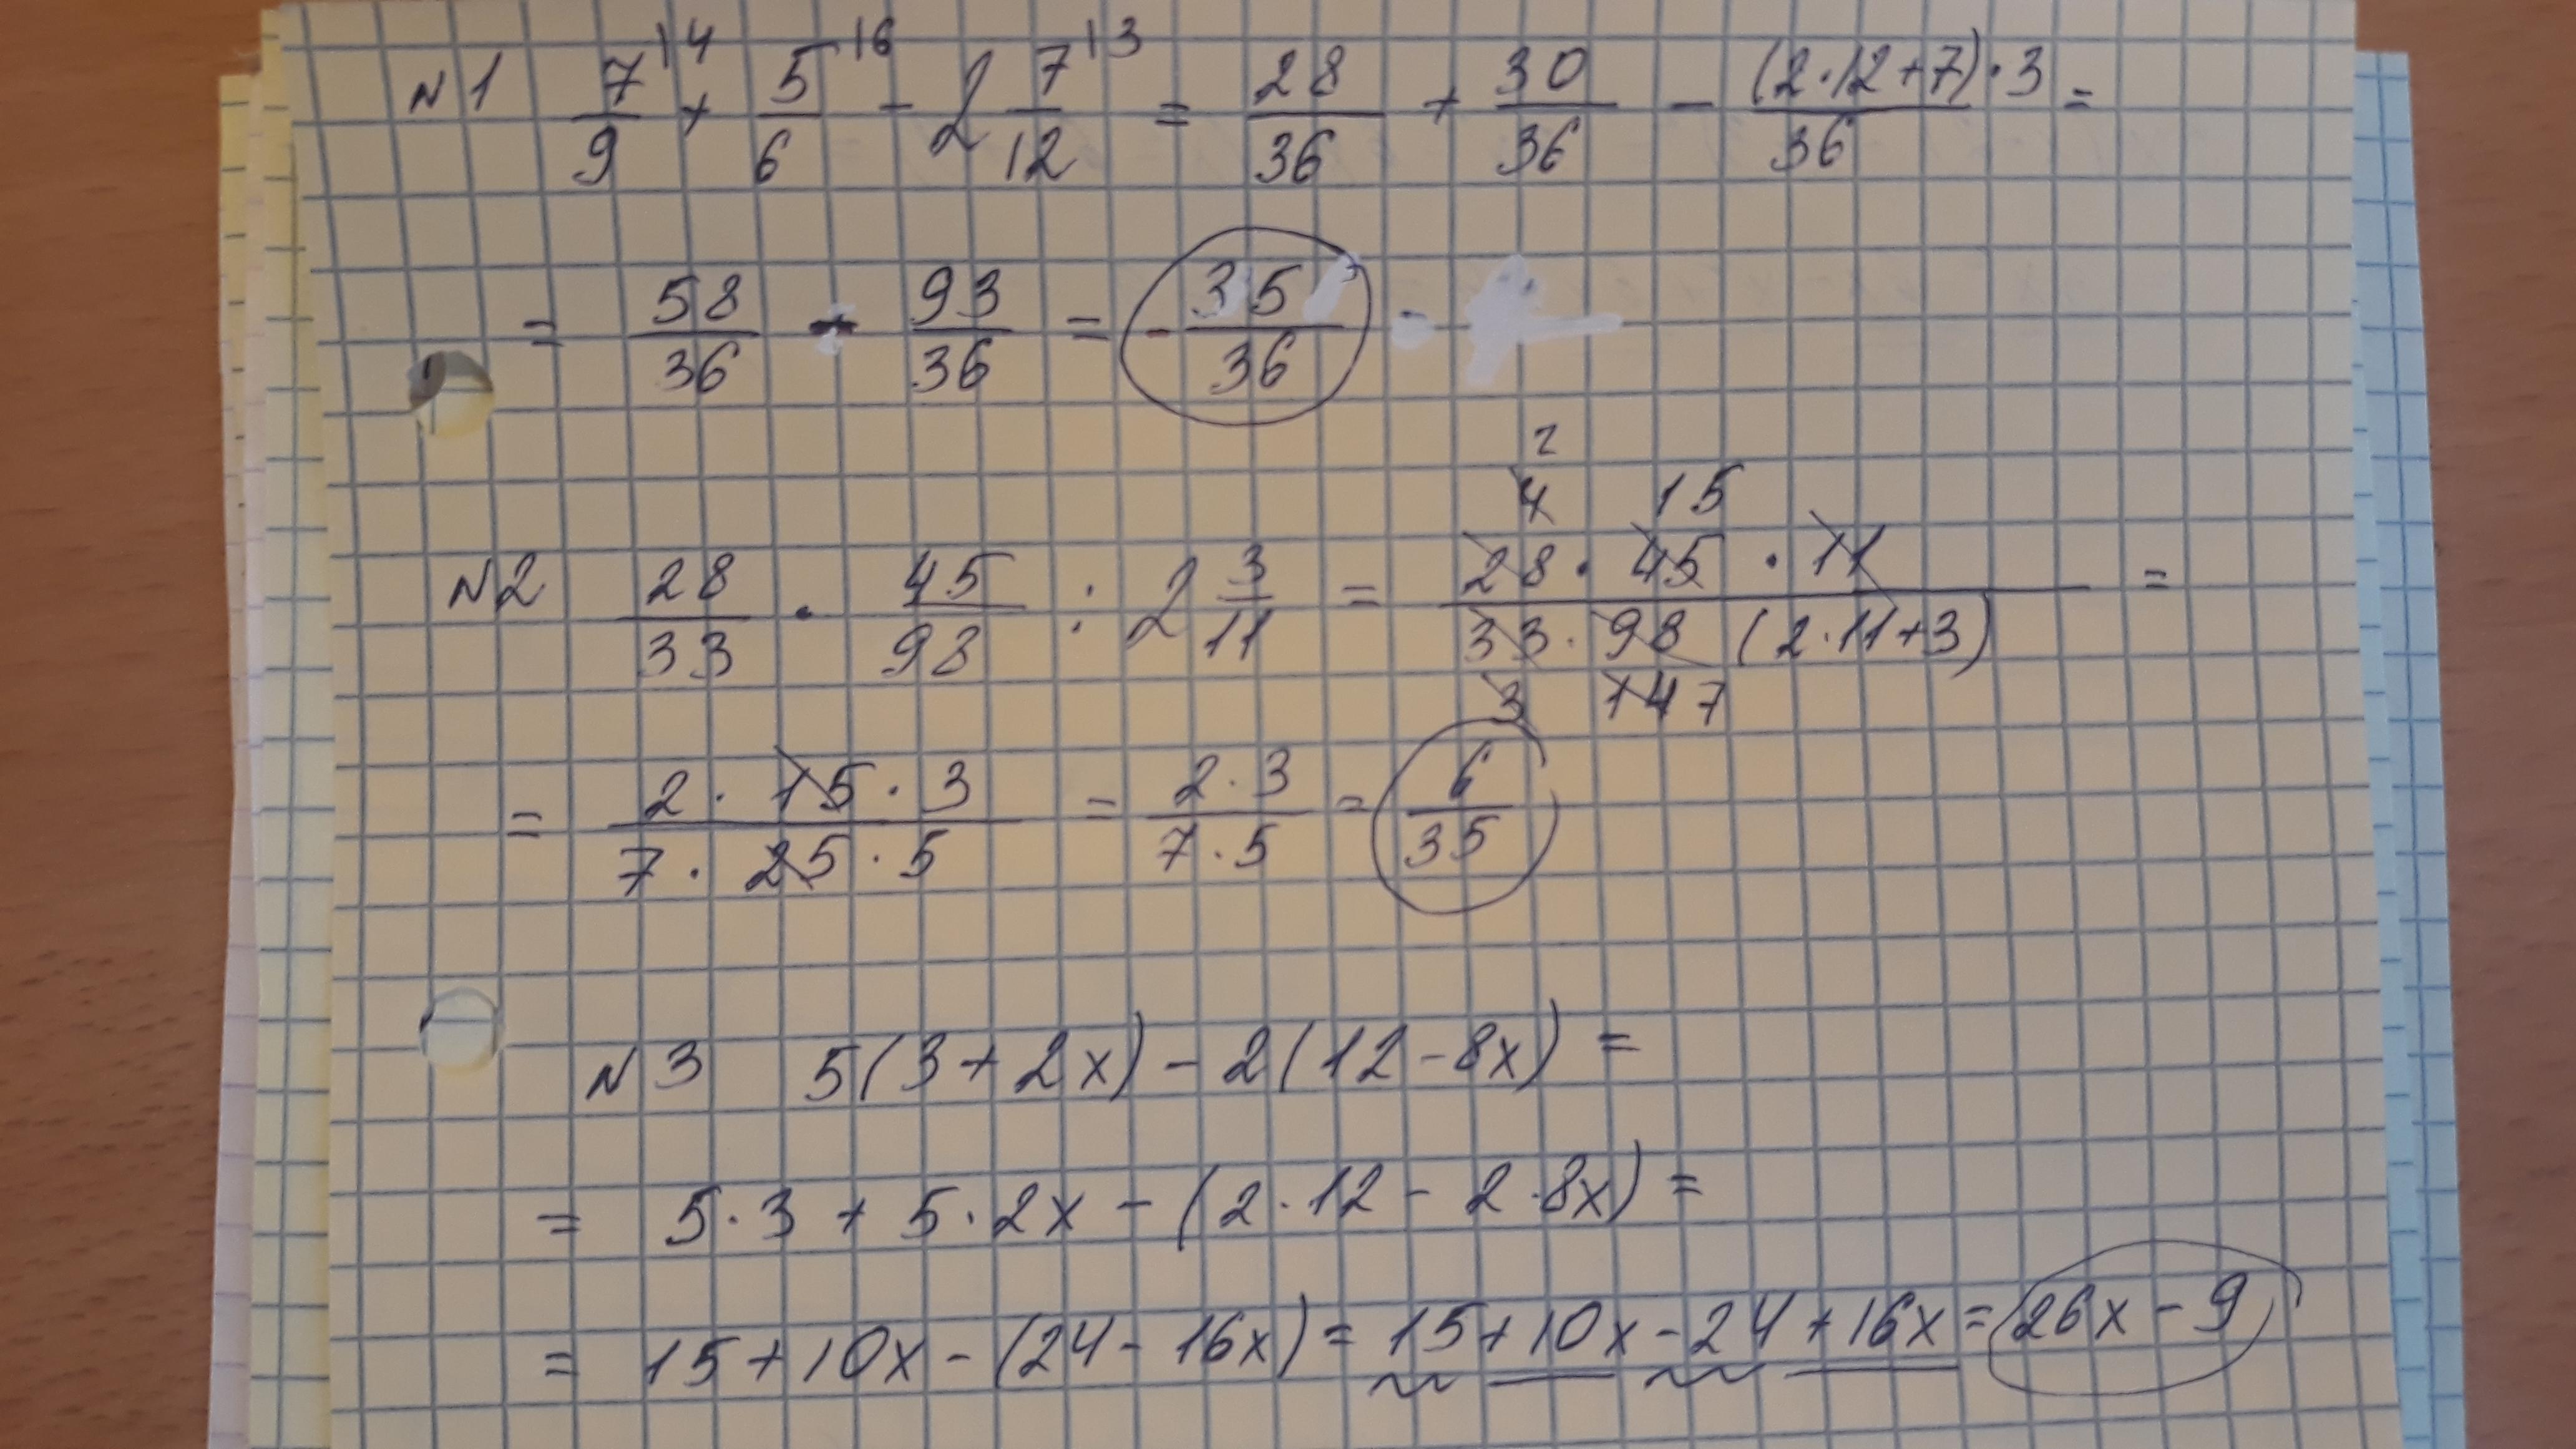 N1 7|4/9 + 5|6/6 - 2 7|3/12 = 28/36 + 30/36 - (2·12+7)·3/36 =
= 58/36 - 93/36 = -35/36
N2 28/33 · 45/98 : 2 3/11 = 28·45·11/33·98(2·11+3) =
= 2·15·3/7·25·5 = 2·3/7·5 = 6/35
N3 5(3+2x)-2(12-8x) =
= 5·3+5·2x-(2·12-2·8x) =
= 15+10x-(24-16x) = 15+10x-24+16x = 26x-9